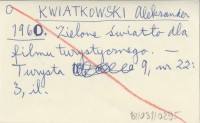 KWIATKOWSKI Aleksander
1960. Zielone światło dla
filmu turystycznego. —
Turysta 9, nr 22:
3, il.